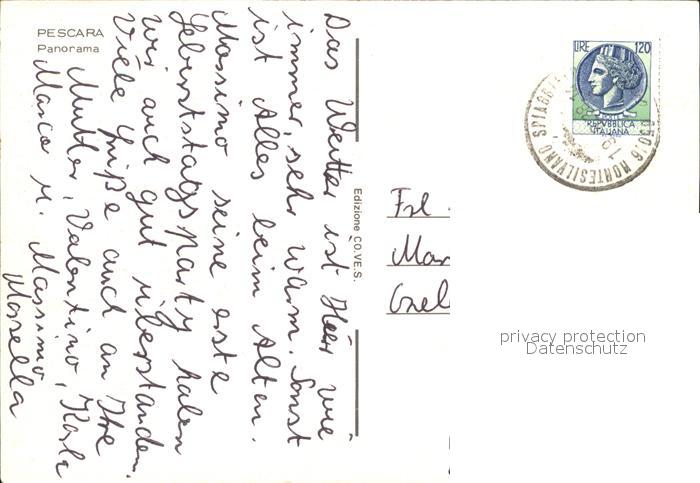 PESCARA
Panorama
Das Wetter ist hier wie
immer, sehr warm. Sonst
ist Alles beim Alten.
Massimo seine erste
Geburtstagsparty haben
wir auch gut überstanden.
Viele Grüße auch an Ihre
Mutter, Valentino, Karla
Marco u. Massimo
Marella
Edizione CO.VE.S.
LIRE 120
REPVBBLICA
ITALIANA
65016 MONTESILVANO SPIAGGIA
Frl.
Mar
privacy protection
Datenschutz